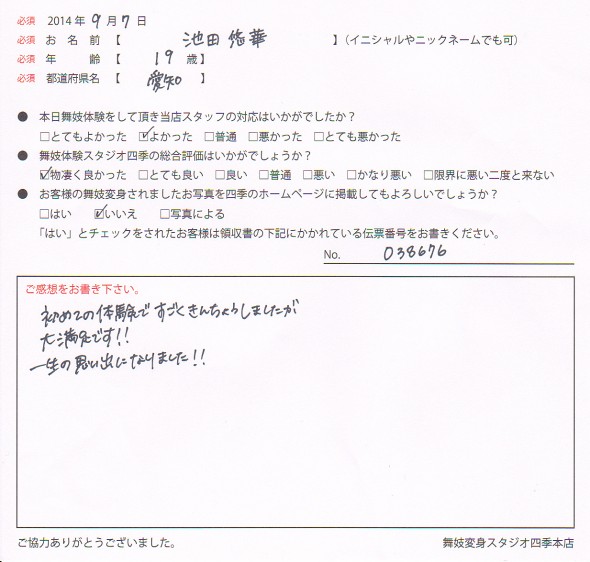 必須 2014年 9月 7日
必須 お名前【 池田 悠華 】(イニシャルやニックネームでも可)
必須 年齢【 19 歳】
必須 都道府県名【 愛知 】
● 本日舞妓体験をして頂き当店スタッフの対応はいかがでしたか?
□とてもよかった ☑よかった □普通 □悪かった □とても悪かった
● 舞妓体験スタジオ四季の総合評価はいかがでしょうか?
☑物凄く良かった □とても良い □良い □普通 □悪い □かなり悪い □限界に悪い二度と来ない
● お客様の舞妓変身されましたお写真を四季のホームページに掲載してもよろしいでしょうか?
□はい ☑いいえ □写真による
「はい」とチェックをされたお客様は領収書の下記にかかれている伝票番号をお書きください。
No. 038676
ご感想をお書き下さい。
初めての体験ですごくきんちょうしましたが
大満足です!!
一生の思い出になりました!!
ご協力ありがとうございました。
舞妓変身スタジオ四季本店